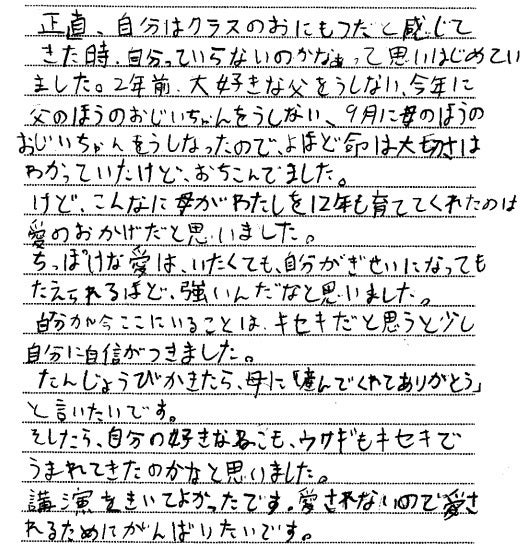 正直、自分はクラスのおにもつだと感じて
きた時、自分っていらないのかなぁって思いはじめてい
ました。2年前、大好きな父をうしない、今年に
父のほうのおじいちゃんをうしない、9月に母のほうの
おじいちゃんをうしなったので、よほど命は大切さは
わかっていたけど、おちこんでました。
けど、こんなに母がわたしを12年も育ててくれたのは
愛のおかげだと思いました。
ちっぽけな愛は、いたくても、自分がぎせいになっても
たえられるほど、強いんだなと思いました。
自分が今ここにいることは、キセキだと思うと少し
自分に自信がつきました。
たんじょうびがきたら、母に「産んでくれてありがとう」
と言いたいです。
そしたら、自分の好きなネコも、ウサギもキセキで
うまれてきたのかなと思いました。
講演をきいてよかったです。愛されないので愛さ
れるためにがんばりたいです。